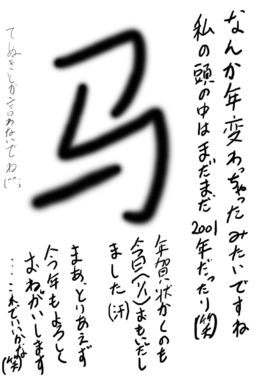 なんか年変わっちゃったみたいですね
私の頭の中はまだまだ2001年だったり(笑)
马
てぬきとか言わないでね(^^;
年賀状かくのも
今日(1/1)おもいだし
ました(汗)
まぁ、とりあえず
今年もよろしく
おねがいします
…これでいいかな(笑)